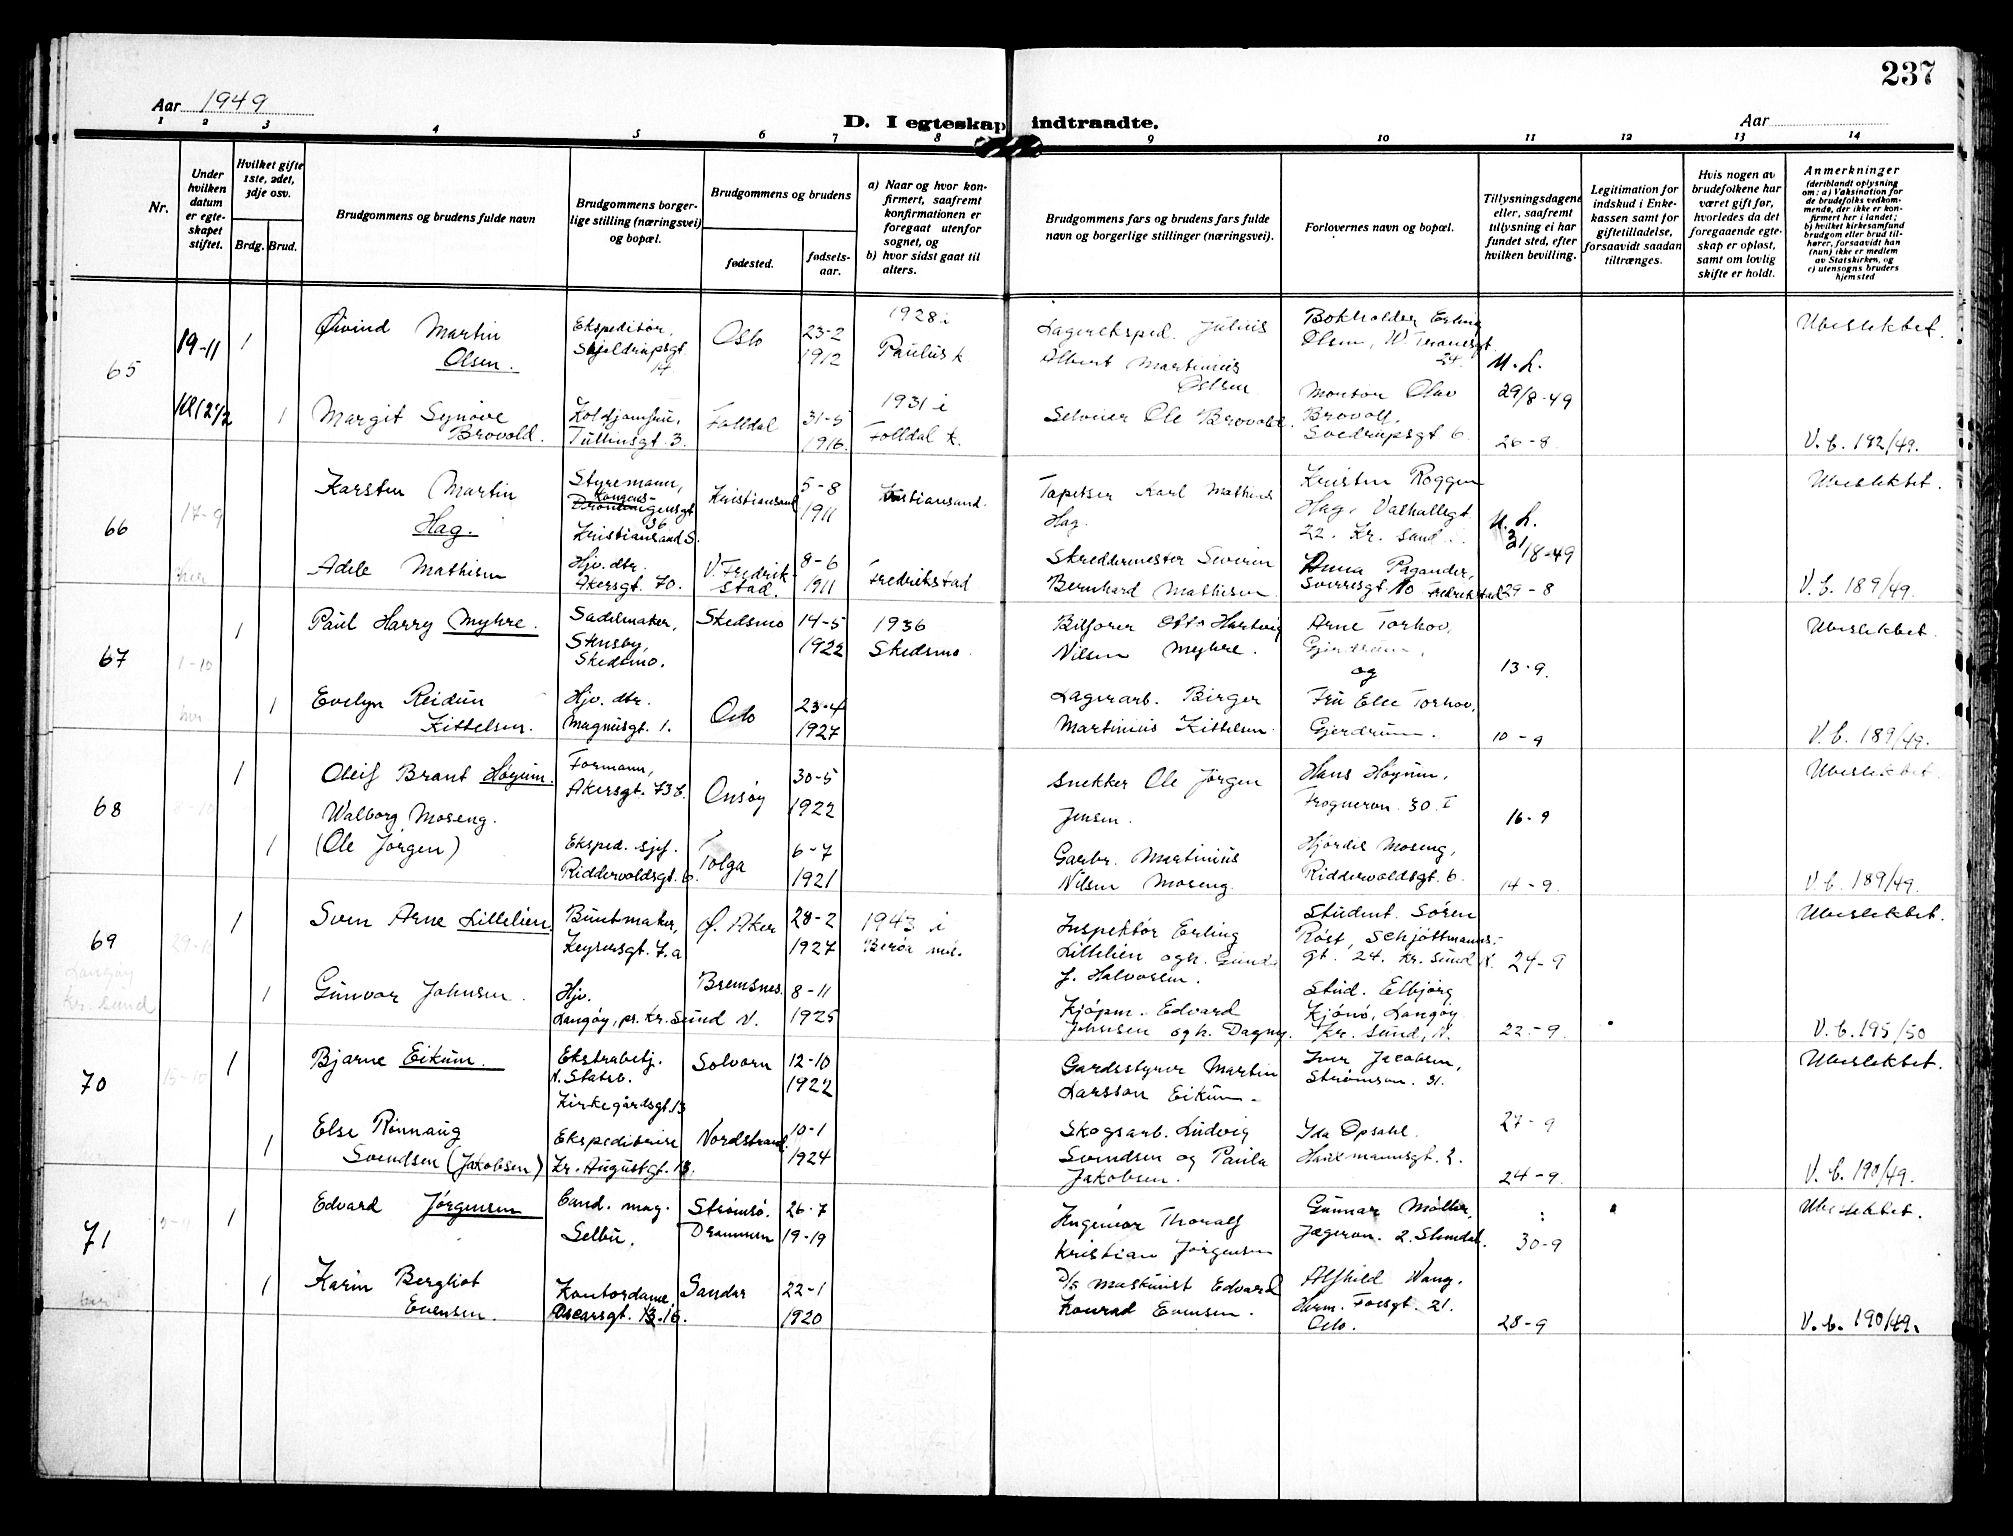 237
Aar 1949
D. I egteskap indtraadte.
Aar
1 2 3 4 5 6 7 8 9 10 11 12 13 14
Nr.
Under hvilken datum er egte-skapet stiftet.
Hvilket gifte 1ste, 2det, 3dje osv.
Brdg. Brud.
Brudgommens og brudens fulde navn
Brudgommens borger-lige stilling (næringsvei) og bopæl.
Brudgommens og brudens
fødested.
fødsels-aar.
a) Naar og hvor kon-firmert, saafremt konfirmationen er foregaat utenfor sognet, og
b) hvor sidst gaat til alters.
Brudgommens fars og brudens fars fulde navn og borgerlige stillinger (næringsvei).
Forlovernes navn og bopæl.
Tillysningsdagene eller, saafremt tillysning ei har fundet sted, efter hvilken bevilling.
Legitimation for indskud i Enke-kassen samt for giftetilladelse, forsaavidt saadan tiltrænges.
Hvis nogen av brudefolkene har været gift før, hvorledes da det foregaaende egte-skap er opløst, samt om lovlig skifte er holdt.
Anmerkninger
(deriblandt oplysning om: a) Vaksination for de brudefolks vedkom-mende, der ikke er kon-firmert her i landet; b) hvilket kirkesamfund brudgom eller brud til-hører, forsaavidt han (hun) ikke er medlem av Statskirken, og c) utensogns bruders hjemsted
65
19-11
1
Øivind Martin
Olsen.
Ekspeditør,
Skjoldrupsgt
14
Oslo
23-2
1912
1928 i
Paulus k
Lagereksped. Julius
Albert Martinius
Olsen
Bokholder Erling
Olsen, W. Thranesgt.
24.
M. L.
Ubeslektet.
Kl 12 1/2
1
Margit Synøve
Brovold.
Tullinsgt. 3.
Folldal
31-5
1916
1931 i
Folldal k.
Selveier Ole Brovold.
Montør Olav
Brovold,
Sverdrupsgt 6.
29/8-49
26-8.
V. b. 182/49.
66
17-9
Karsten Martin
Hag.
Styrmann,
Kongens-
Dronningensgt
36
Kristiansand S.
Kristiansand
5-8
1911
Kristiansand.
Tapetser Karl Mathias
Hag.
Kristen Roggen
Hag, Valhallagt
22. Kr. sand
M. L.
31/8-49
Ubeslektet.
her
Adele Mathisen
Hjv. dtr.
Akersgt. 70.
V. Fredrik-
stad.
8-6
1911
Fredrikstad
Skreddermester Severin
Bernhard Mathisen.
Anna Pagander,
Sverresgt 10 Fredrikstad
29-8
V. b. 189/49.
67
1-10
1
Paul Harry Myhre.
Sadelmaker,
Stensby,
Skedsmo.
Skedsmo
14-5
1922
1936
Skedsmo.
Bilfører Otto Hartvig
Nilsen Myhre.
Arne Torhov,
Gjerdrum,
og
13-9.
Ubeslektet.
her
1
Evelyn Reidun
Kittelsen.
Hjv. dtr.
Magnusgt. 1.
Oslo
23-4
1927
Lagerarb. Birger
Martinius Kittelsen.
Fru Else Torhov,
Gjerdrum.
10-9
V. b. 189/49.
68
8-10
1
Oleif Brant Høyum.
Formann,
Akersgt. 73 b.
Onsøy
30-5
1922
Snekker Ole Jørgen
Jensen.
Hans Høyum,
Frognervn. 30. I
16-9
Ubeslektet.
1
Walborg Moseng.
(Ole Jørgen)
Eksped. sjef.
Riddervoldsgt. 6.
Tolga
6-7
1921
Garbr. Martinius
Nilsen Moseng.
Hjørdis Moseng,
Riddervoldsgt. 6.
14-9.
V. b. 189/49.
69
29-10
Langøy
Kr. sund
1
Sven Arne Lillelien.
Buntmaker,
Keysersgt. 7. a
Ø. Aker
28-2
1927
1943 i
Inspektør Erling
Lillelien ogh. Gunda
f. Halvorsen.
Student. Sören
Röst, Schjöttmanns-
gt. 24. Kr. sund N.
24-9
Ubeslektet.
1
Gunvor Johnsen.
Hjv.
Langøy, pr. Kr. Sund N.
Bremsnes.
8-11
1925
Kjøpm. Edvard
Johnsen ogh. Dagny.
Stud. Elbjørg
Kjönö, Langøy
Kr. Sund, N.
22-9.
V. b. 195/50
70
15-10
1
Bjarne Eikum.
Ekstrabetj.
v. Statsb.
Kirkegårdsgt. 13
Solvorn
12-10
1922
Gardsstyrer Martin
Larsson Eikum.
Iver Jacobsen,
Strømsvn. 31.
27-9
Ubeslektet.
1
Else Rønnaug
Svendsen (Jakobsen)
Ekspeditrise
Kr. Augustgt. 13.
Nordstrand.
10-1
1924
Skogsarb. Ludvig
Svendsen og Paula
Jakobsen.
Ida Opsahl.
Hauxmannsgt. 2.
24-9.
V. b. 190/49.
71
5-11
1
Edvard Jørgensen
Cand. mag.
Selbu.
Strømsø.
Drammen
26-7
19-19
Ingeniør Thoralf
Kristian Jørgensen
Gunnar Møller,
Jægervn. 2. Slemdal.
30-9
Ubeslektet.
her
1
Karin Bergliot
Evensen.
Kontordame.
Oscarsgt. 13.16.
Sandar
22-1
1920
D/S maskinist Edvard
Konrad Evensen.
Alfhild Wang.
Herm. Fossgt. 21.
Oslo.
28-9
V. b. 190/49.